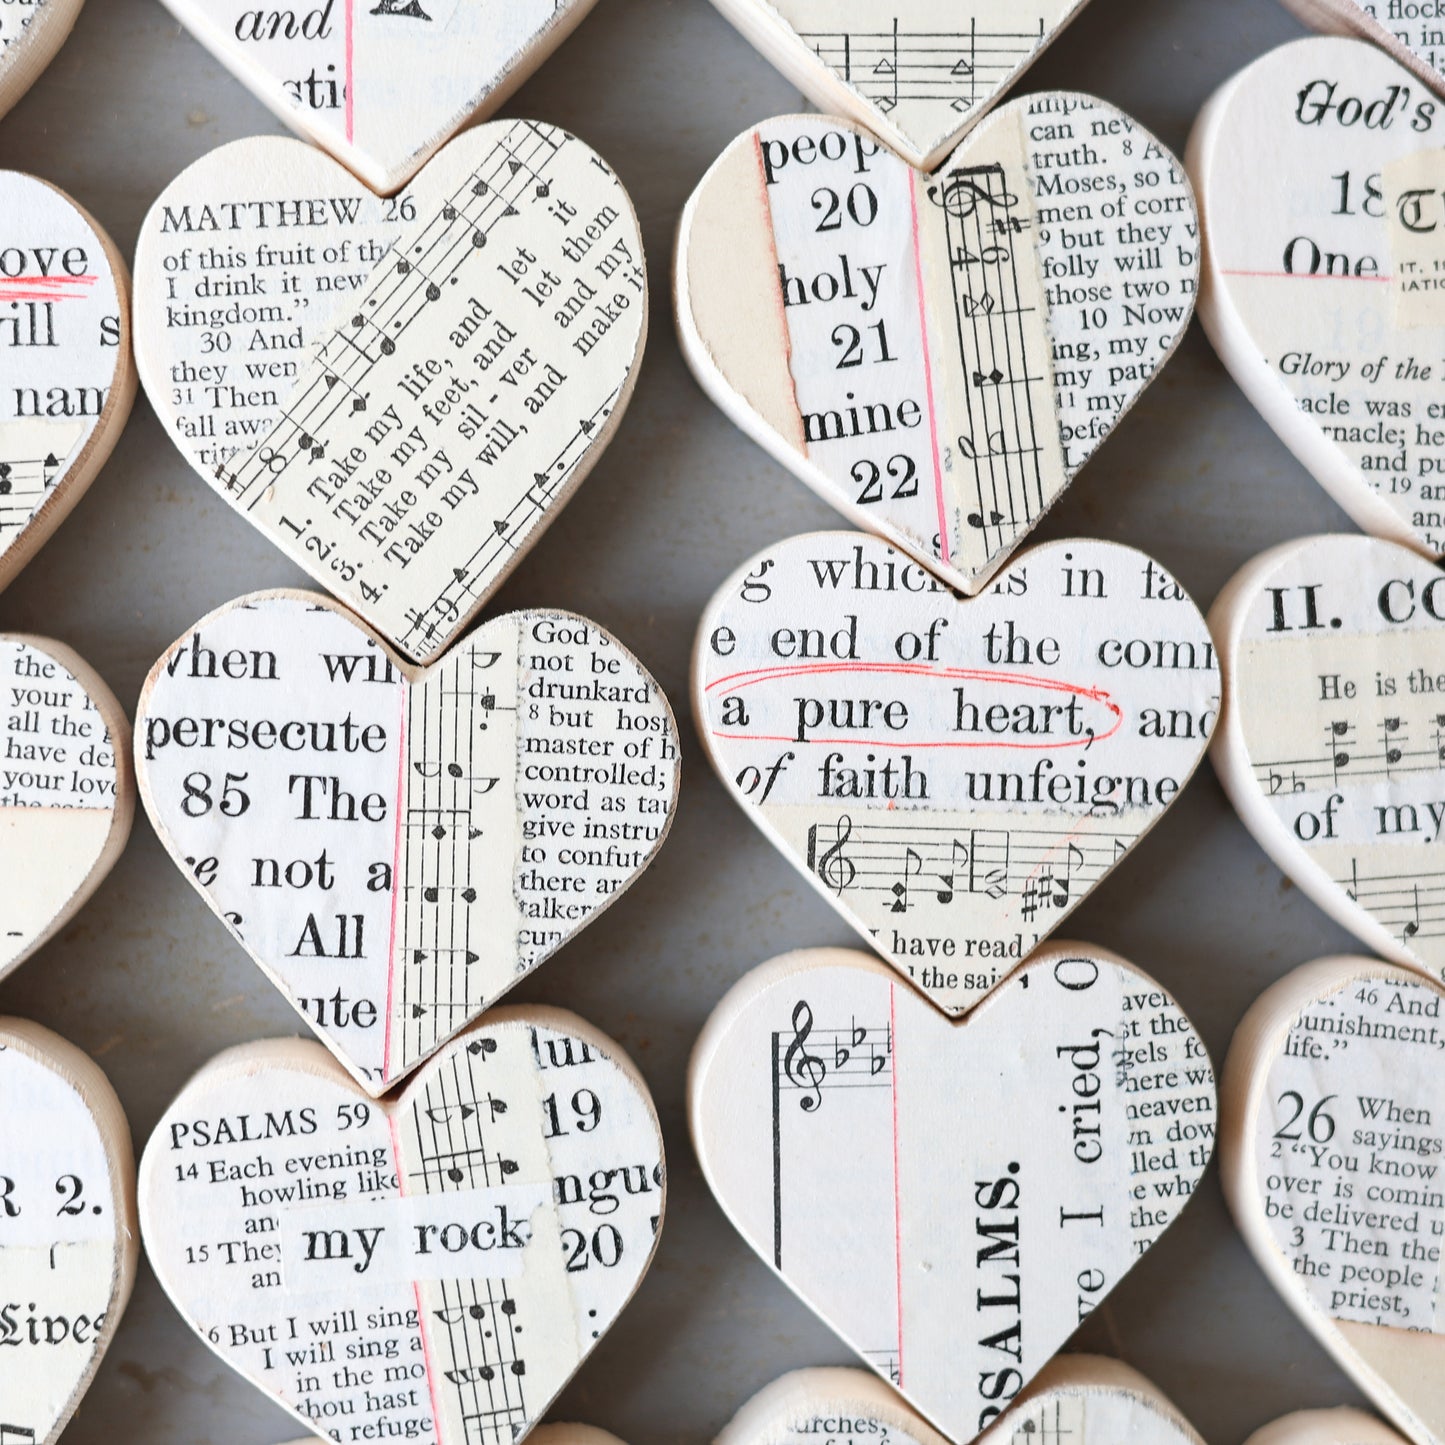 and
God's
18
One
IT. 1
Glory of the
acle was
rnacle; he
and pu
19 an
MATTHEW 26
of this fruit of th
I drink it new
kingdom.”
30 And
they wen
31 Then
fall awa
8
1. Take my life, and let it
2. Take my feet, and let them
3. Take my sil - ver and my
4. Take my will, and make it
9
peop
20
holy
21
mine
22
6
4
can nev
truth. 8 A
Moses, so t
men of corr
9 but they
folly will b
those two
10 Now
ing, my c
my pati
11 my
ove
ill s
nam
when wil
persecute
85 The
not a
All
ute
God's
not be
drunkard
8 but hosp
master of h
controlled;
word as tau
give instru
to confut
there ar
talker
cun
g which is in fa
e end of the comm
a pure heart, and
of faith unfeigne
I have read
the sai
II. CO
He is the
of my
the s
your
all the
have de
your love
the sain
PSALMS 59
14 Each evening
howling like
an
15 They
an
my rock
16 But I will sing
I will sing a
in the mo
thou hast
a refuge
19
ngue
20
PSALMS.
ve I cried, O
aven
st the
gels fo
here wa
heaven
n dow
lled th
e who
the
46 And
punishment,
life.”
26 When
sayings
2 “You know
over is comin
be delivered u
3 Then the
the people
priest,
R 2.
Lives
urches,